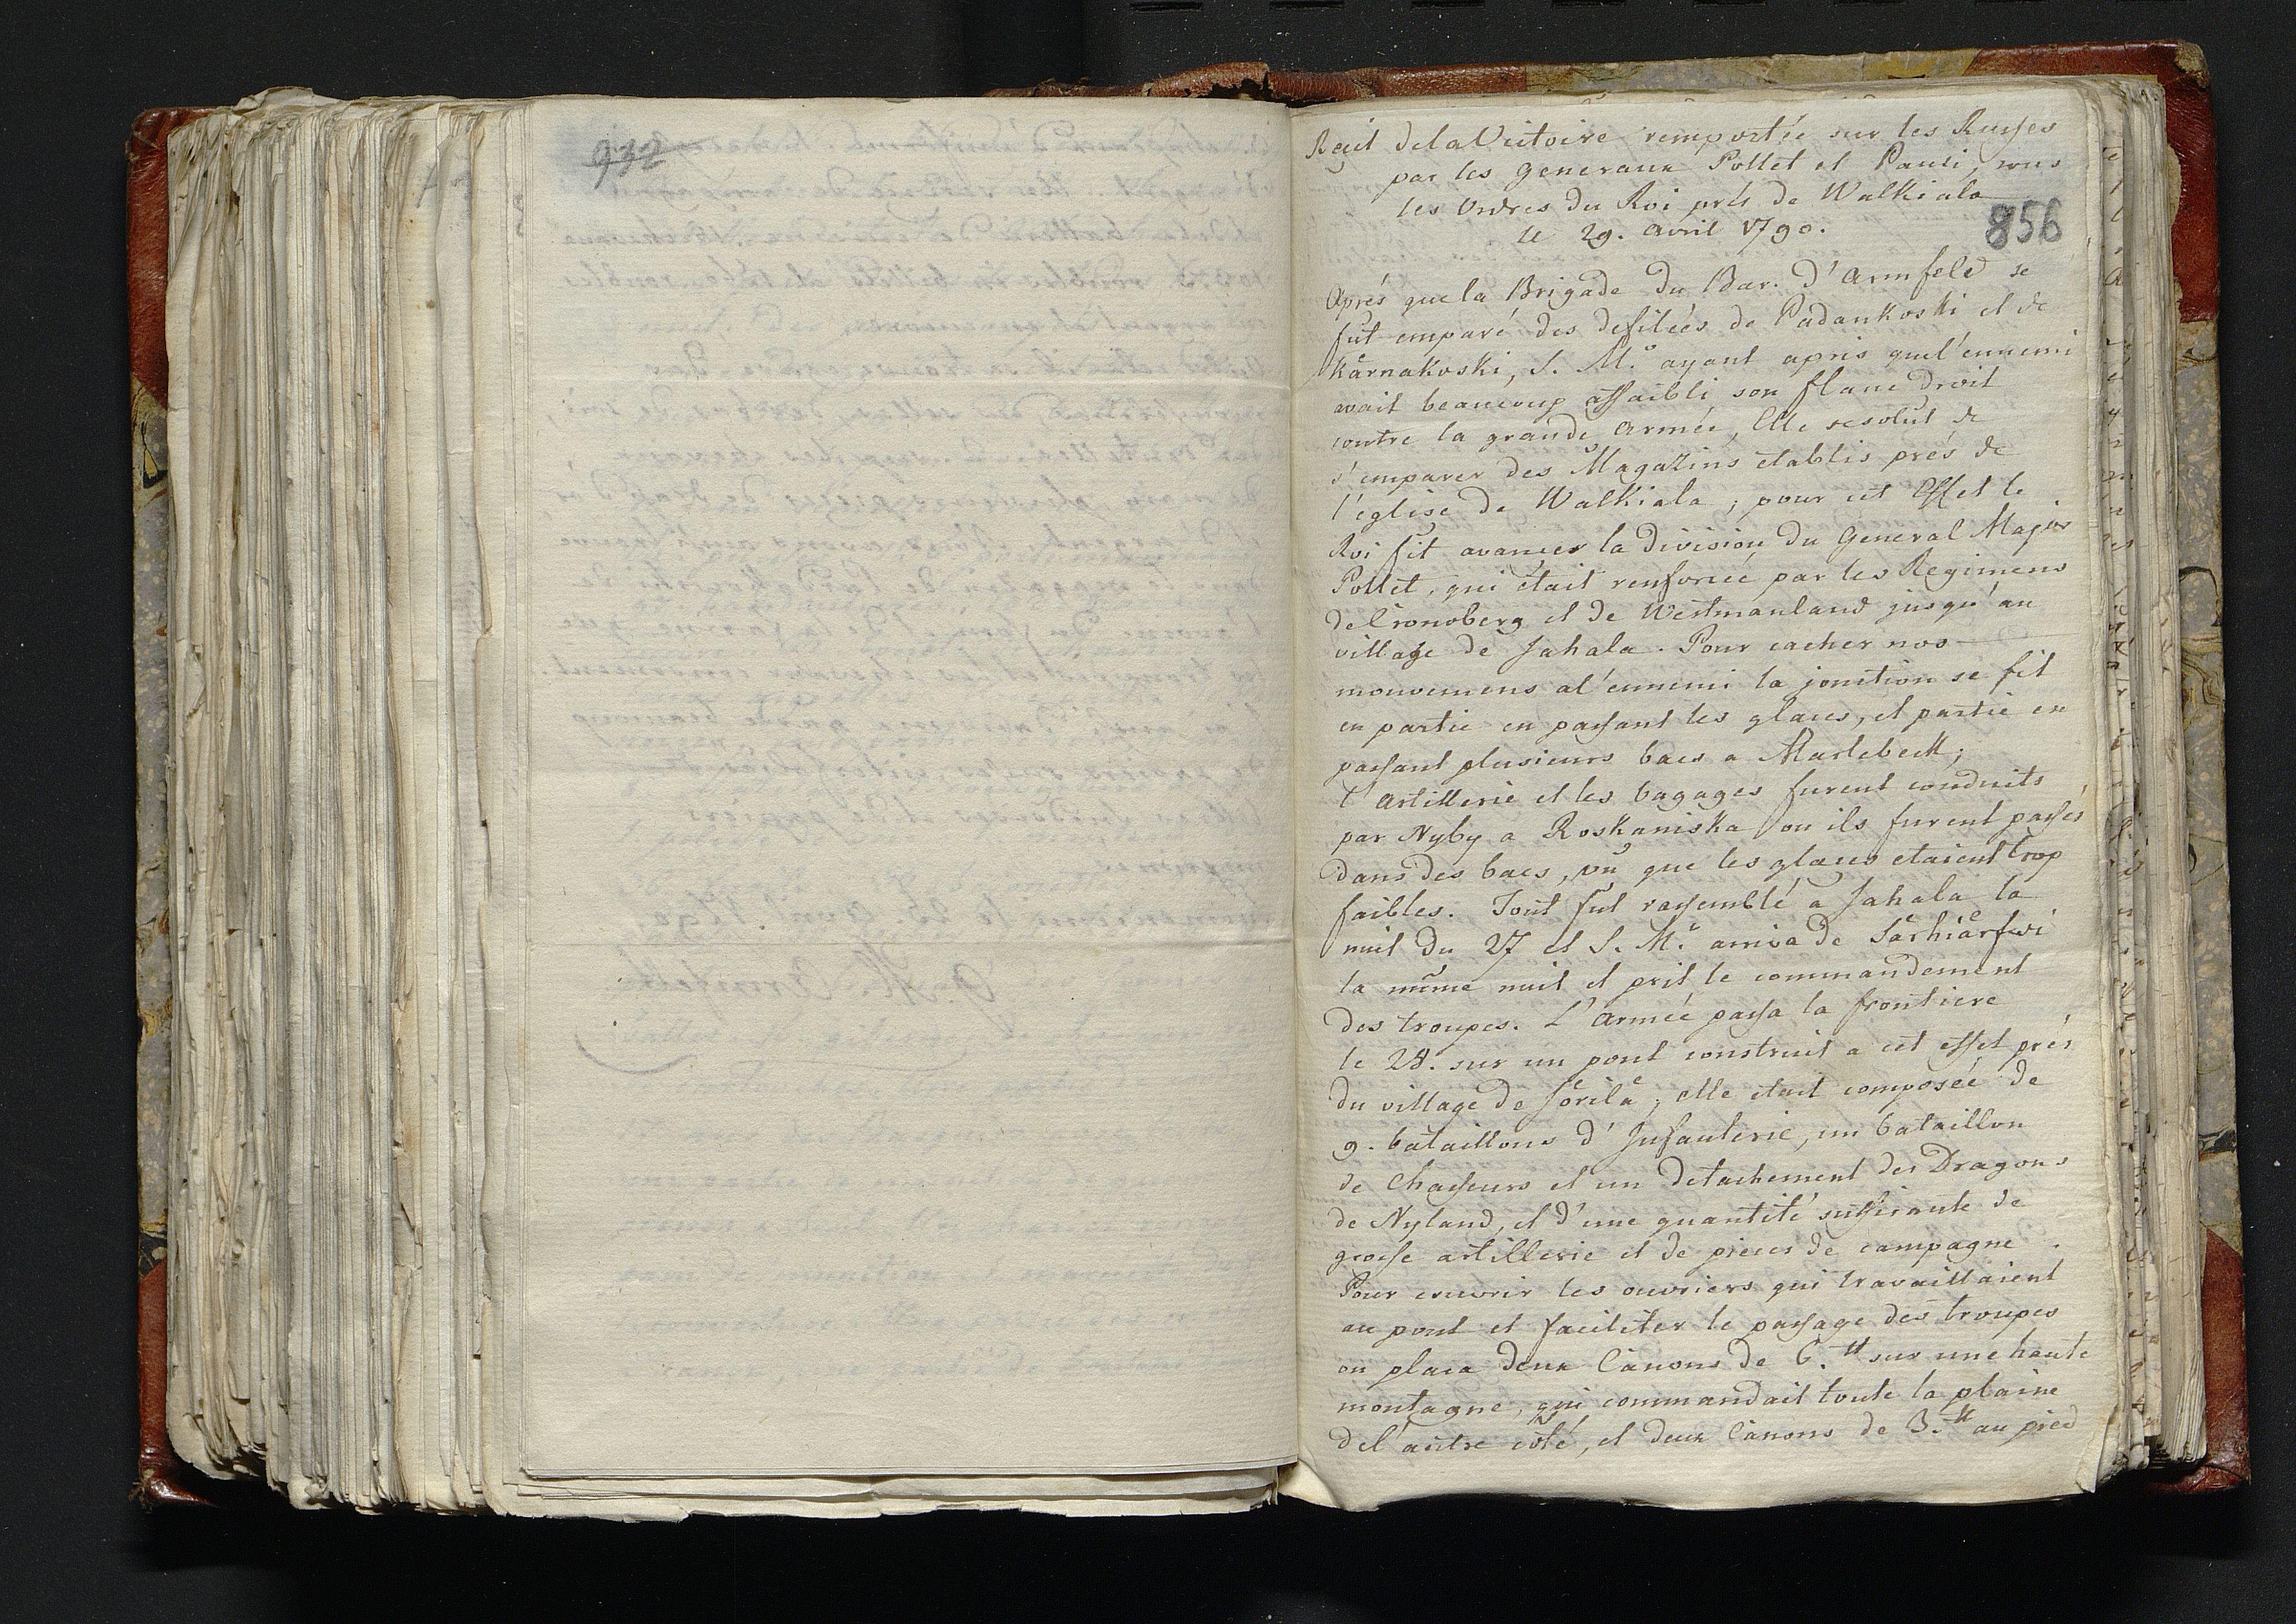 932
Reçit de la Victoire remportée sur les Russes
par les generaux Pollet et Pauli, sous
les Ordres du Roi prés de Walkiala
le 29. avril 1790.
856
Aprés que la Brigade du Bar. d'Armfeld se
fut emparé des defileés de Padankoski et de
Kärnakoski, S. M.e ayant apris que l'ennemi
avait beaucoup affaibli son flanc droit
contre la grande armée, Elle resolut de
s'emparer des Magazins etablis prés de
l'église de Walkiala; pour cet Effet le
Roi fit avancer la division du General Major
Pollet, qui était renforcée par les Regimens
de Cronoberg et de Westmanland jusqu'au
village de Jahala. Pour cacher nos
mouvemens a l'ennemi la jonction se fit
en partie en passant les glaces, et partie en
passant plusieurs bacs a Martebeck;
l'Artillerie et les bagages furent conduits
par Nyby a Roskaniska ou ils furent passés
dans des bacs, vu que les glaces etaient trop
faibles. Tout fut rassemblé a Jahala la
nuit du 27 et S. M.e arriva de Särhiärfwi
la même nuit et prit le commandement
des troupes. L'Armée passa la frontiere
le 28. sur un pont construit a cet effet prés
du village de Sorila; elle etait composée de
9. bataillons d'Infanterie, un bataillon
de Chasseurs et un detachement des Dragons
de Nyland, et d'une quantité suffisante de
grosse artillerie et de pieces de campagne.
Pour couvrir les ouvriers qui travaillaient
au pont et faciliter le passage des troupes
on plaça deux Canons de 6. tt sur une haute
montagne, qui commandait toute la plaine
de l'autre coté, et deux Canons de 3. tt au pied